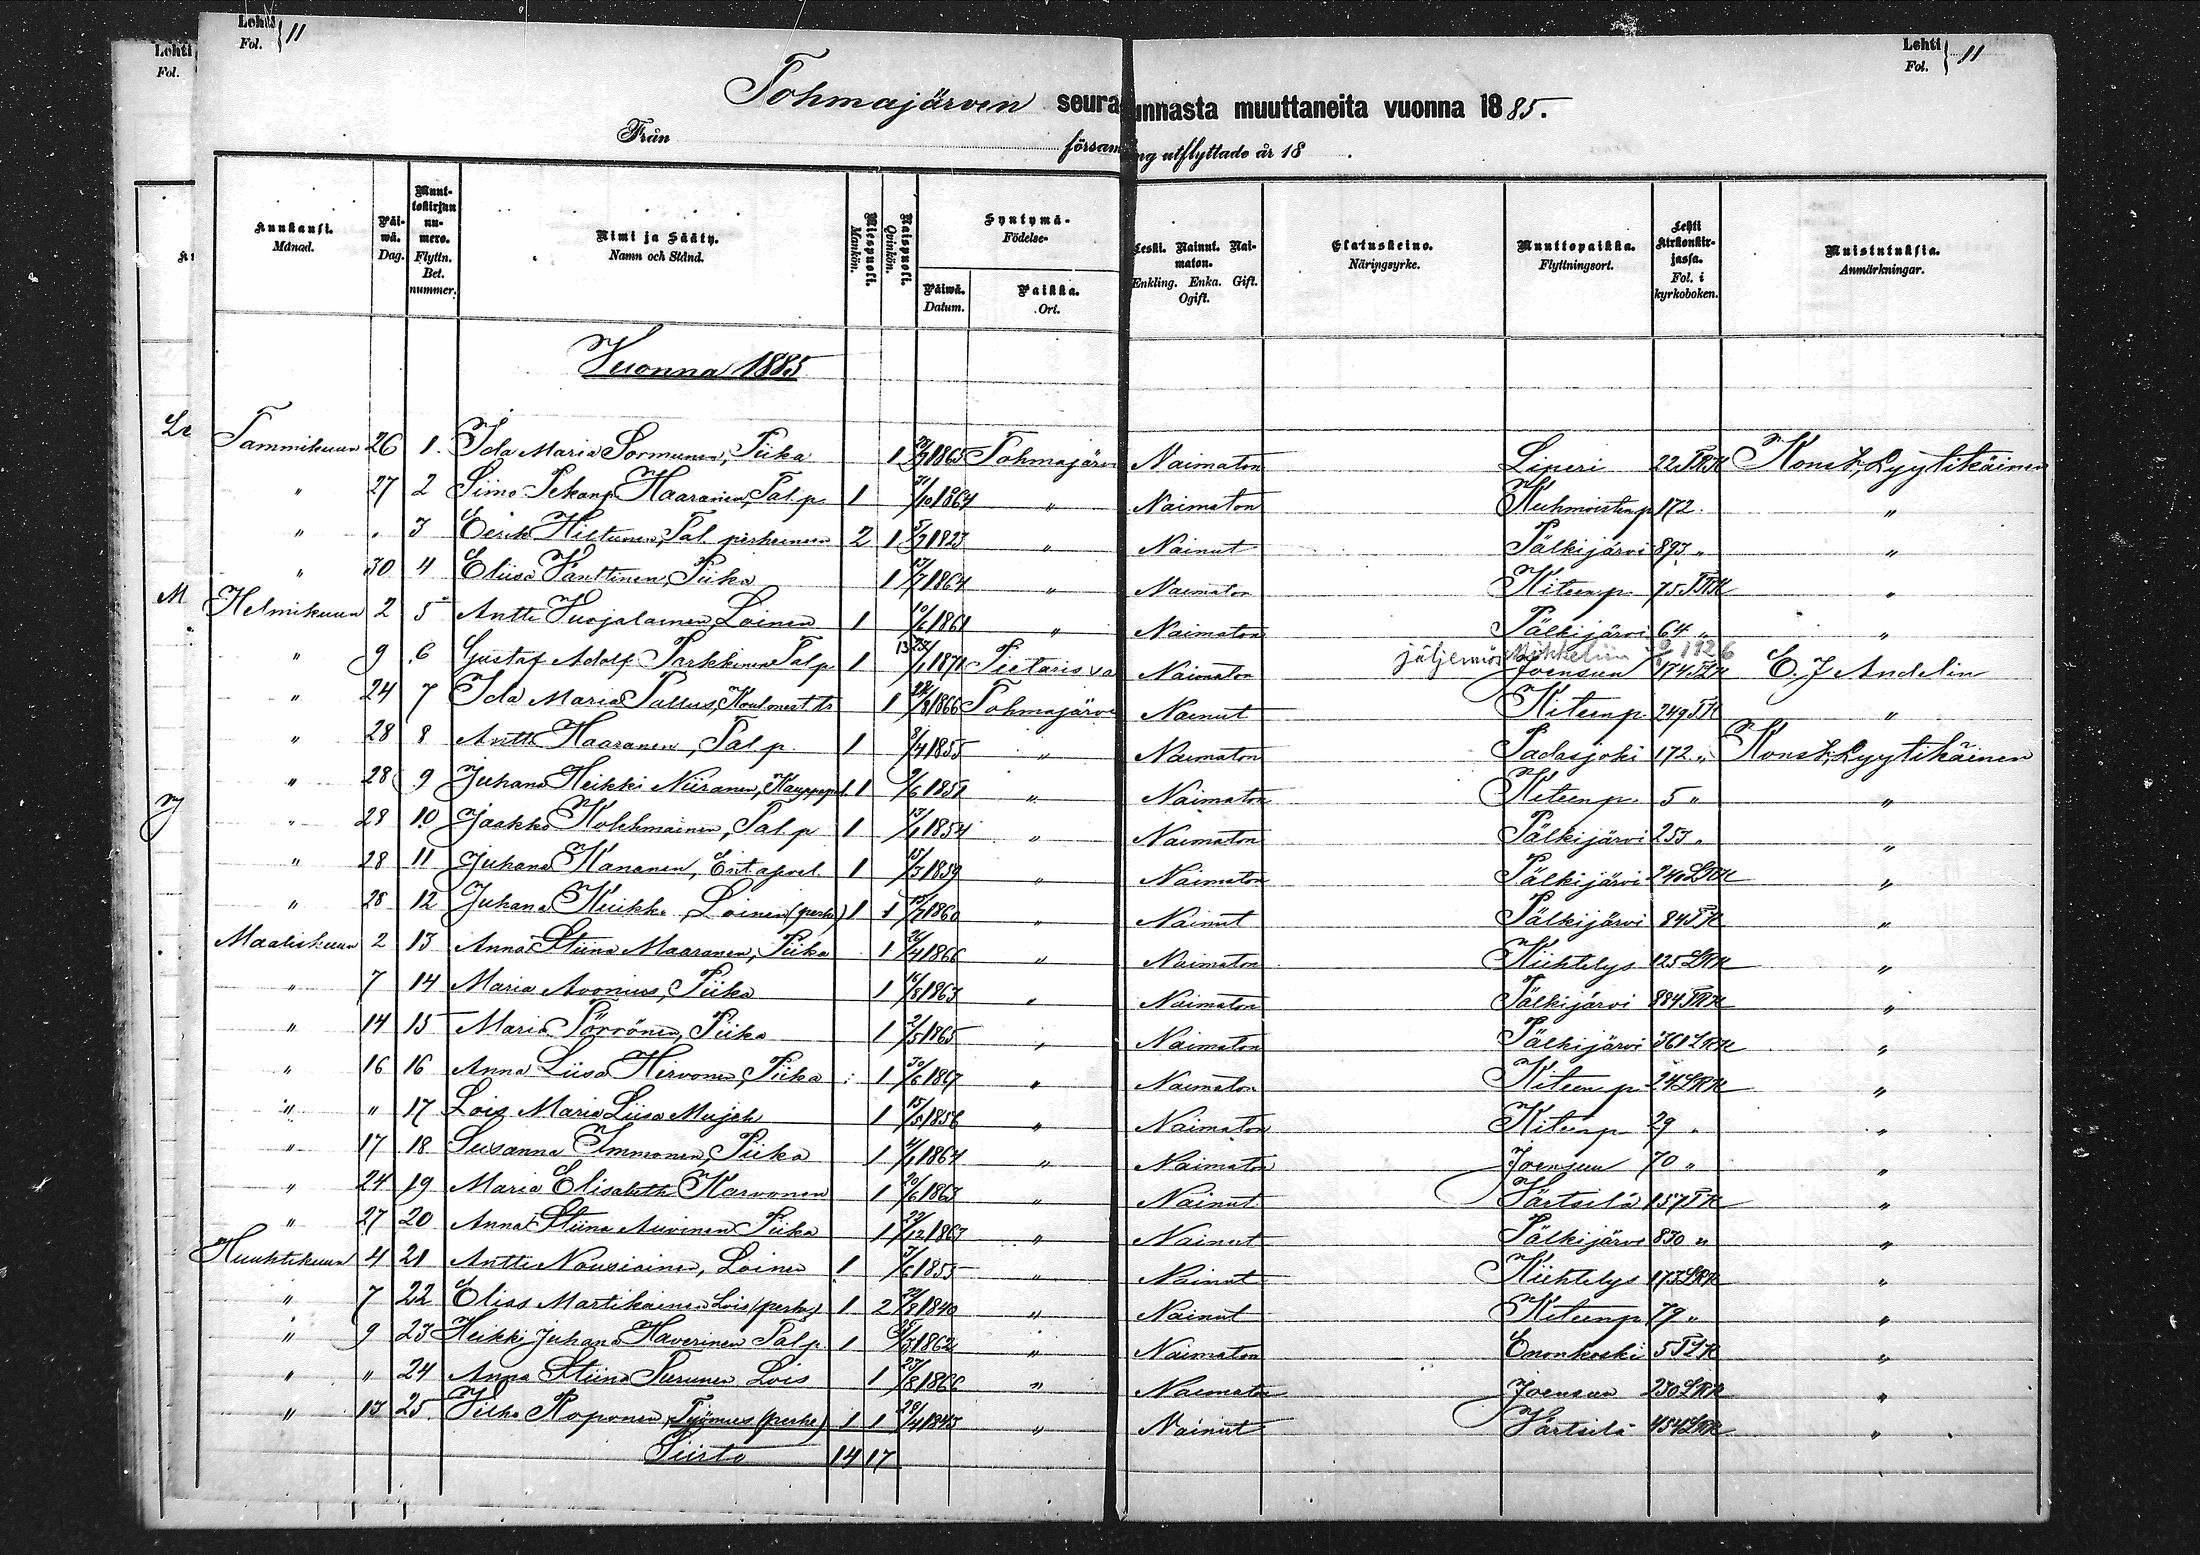 Lehti Fol. } 11
Lehti Fol. } 11
Lehti
Fol.
Tohmajärven seurakunnasta muuttaneita vuonna 1885.
Från församling utflyttade år 18 .
Kuukausi. Månad.
Päiwä. Dag.
Muuttokirjan numero. Flyttn. Bet. nummer.
Nimi ja Sääty. Namn och Stånd.
Miespuoli. Mankön.
Naispuoli. Qvinkön.
Syntymä- Födelse-
Päiwä. Datum.
Paikka. Ort.
Leski. Nainut. Naimaton. Enkling. Enka. Gift. Ogift.
Elatuskeino. Näringsyrke.
Muuttopaikka. Flyttningsort.
Lehti kirkonkirjassa. Fol. i kyrkoboken.
Muistutuksia. Anmärkningar.
Vuonna 1885
Tammikuun 26 1. Ida Maria Sormunen, Piika 1 1865 Tohmajärvi Naimaton Liperi 22 Konst. Lyytikäinen
" 27 2 Simo Pekanp Haaranen, Tal p 1 /10 1864 " Naimaton Kuhmoisten p 172 "
" " 3 Eerik Hiltunen, Tal. perheineen 2 1 1823 " Nainut Pälkijärvi 893 " "
" 30 4 Eliisa Vänttinen, Piika 1 13/7 1864 " Naimaton Kiteen p 75 "
Helmikuun 2 5 Antti Suojalainen, Loinen 1 10/6 1861 " Naimaton Pälkijärvi 64 " "
" 9 6 Gustaf Adolf Parkkinen Tal p 1 1871 Pietarissa Naimaton Joensuu 174 E. J Andelin
" 24 7 Ida Maria Pallus, Koulumest tr 1 28/8 1866 Tohmajärvi Nainut Kiteen p. 249 TK "
" 28 8 Antti Haaranen, Tal p 1 /4 1855 " Naimaton Padasjoki 172 " Konst. Lyytikäinen
" 28 9 Juhana Heikki Niiranen, Kauppapal. 1 9/6 1851 " Naimaton Kiteen p. 5 " "
" 28 10 Jaakko Kolehmainen, Tal p 1 13/1 1854 " Naimaton Pälkijärvi 253 " "
" 28 11 Juhana Kananen, Ent apvel 1 15/3 1859 " Naimaton Pälkijärvi 240 LRK "
" 28 12 Juhana Kuikka, Loinen (perhe) 1 1 /7 1860 " Nainut Pälkijärvi 84 TK "
Maaliskuun 2 13 Anna Stiina Maaranen, Piika 1 26/4 1866 " Naimaton Kiihtelys 125 LRK "
" 7 14 Maria Avonius, Piika 1 16/8 1863 " Naimaton Pälkijärvi 884 "
" 14 15 Maria Törrönen, Piika 1 2/5 1865 " Naimaton Pälkijärvi 361 LRK "
" 16 16 Anna Liisa Hirvonen, Piika 1 30/6 1867 " Naimaton Kiteen p 24 LRK "
" " 17 Lois Maria Liisa Mujeh 1 15/5 1856 " Naimaton Kiteen p 29 " "
" 17 18 Susanna Immonen, Piika 1 4/1 1864 " Naimaton Joensuu 70 " "
" 24 19 Maria Elisabeth Karvonen 1 20/6 1863 " Nainut Värtsilä 157 TK "
" 27 20 Anna Stiina Auvinen Piika 1 22/12 1863 " Nainut Pälkijärvi 830 " "
Huuhtikuun 4 21 Antti Nousiainen, Loinen 1 3/6 1855 " Nainut Kiihtelys 173 LRK "
" 7 22 Elias Martikainen Lois (perhe) 1 2 22/8 1840 " Nainut Kiteen p 79 " "
" 9 23 Heikki Juhana Haverinen Tal p. 1 1862 " Naimaton Enonkoski 5 "
" " 24 Anna Stiina Purunen Lois 1 23/8 1866 " Naimaton Joensuu 230 LRK "
" 13 25 Vilho Roponen, Työmies (perhe) 1 1 28/4 1843 " Nainut Värtsilä 454 LRK "
Siirto 14 17